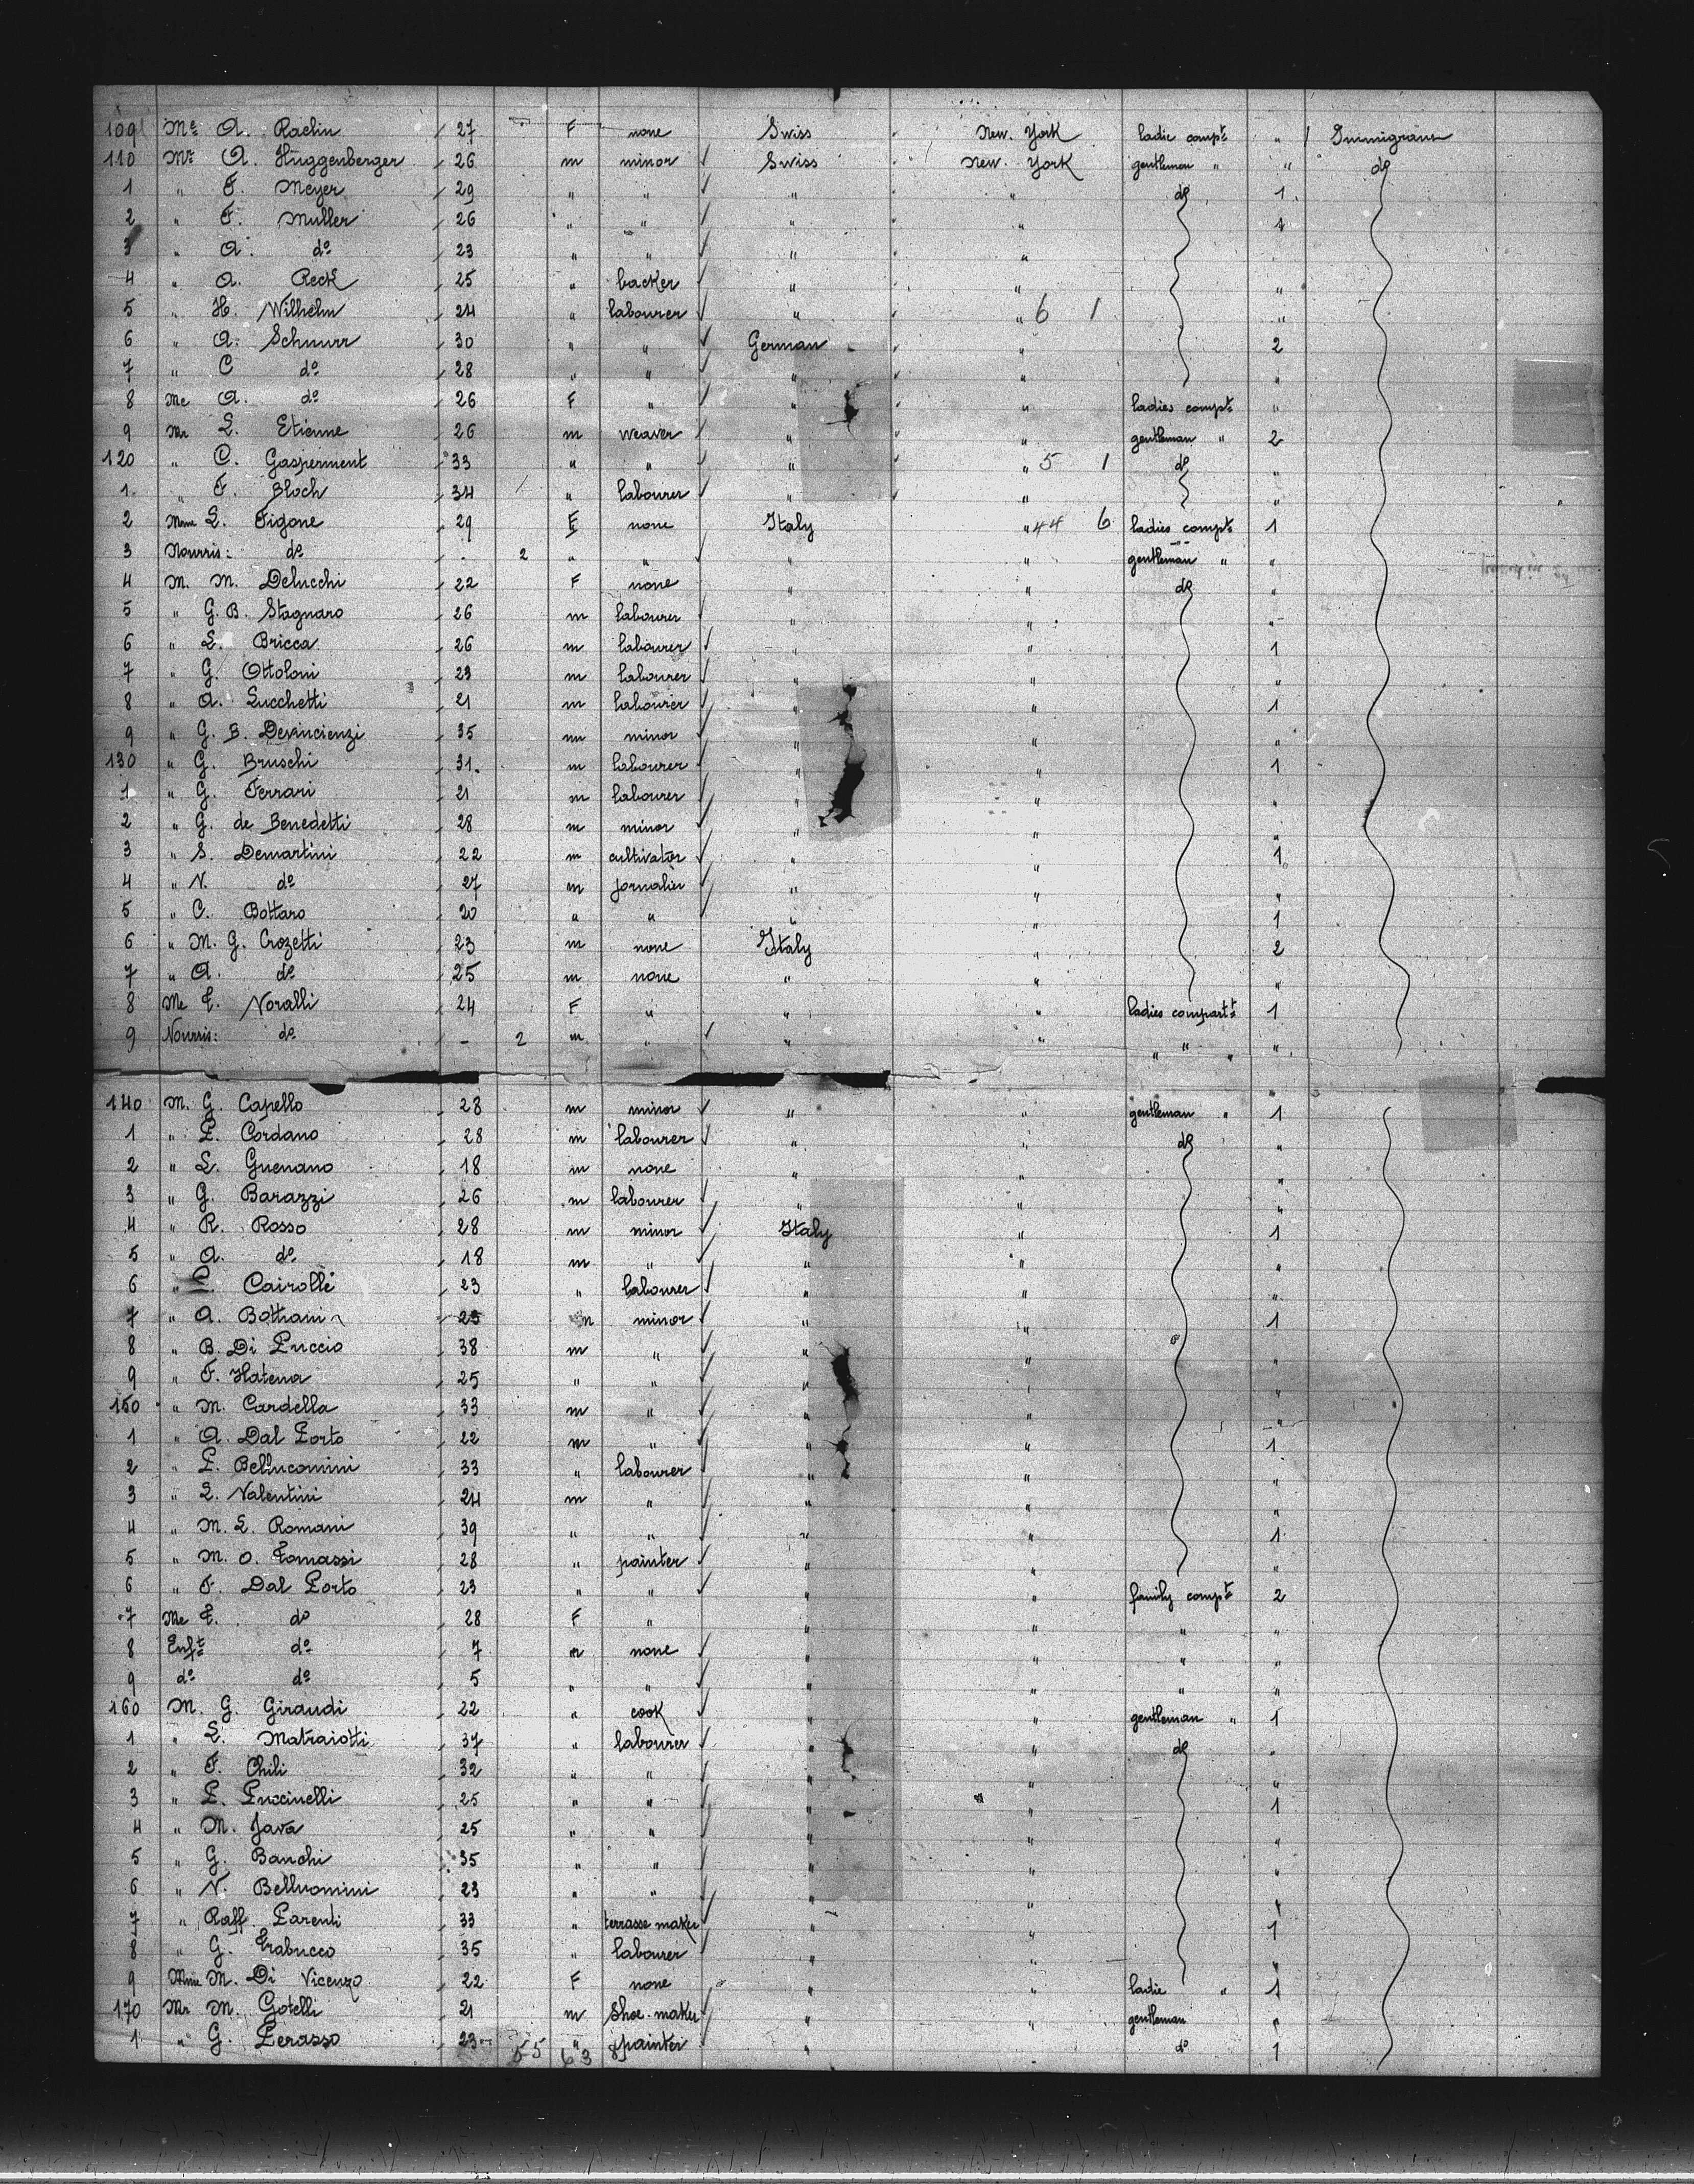 109 Me A. Raclin 27 F none Swiss New. York ladie compt " 1 Immigrans
110 Mr A. Huggenberger 26 m minor Swiss New. York gentleman " " do
1 " F. Meyer 29 " " " " do 1
2 " F. Muller 26 " " " " 1
3 " A. do 23 " " " "
4 " A. Reck 25 " backer " " "
5 " H. Wilhelm 24 " labourer " " 6 1 "
6 " A. Schnurr 30 " " German " 2
7 " C do 28 " " " " "
8 Me A. do 26 F " " " ladies compts "
9 Mr L. Etienne 26 m weaver " " gentleman " 2
120 " C. Gasperment 33 " " " " 5 1 do "
1 " F. Bloch 34 " labourer " " "
2 Mme L. Figone 29 F none Italy " 44 6 ladies compts 1
3 Nourris: do . 2 " " gentleman " "
4 M. M. Delucchi 22 F none " " do "
5 " G. B. Stagnaro 26 m labourer " " "
6 " L. Bricca 26 m labourer " 1
7 " G. Ottoloni 23 m labourer " " "
8 " A. Lucchetti 21 m labourer " " 1
9 " G. B. Devincienzi 35 m minor " " "
130 " G. Bruschi 31. m labourer " " 1
1 " G. Ferrari 21 m labourer " " "
2 " G. de Benedetti 28 m minor " " "
3 " S. Demartini 22 m cultivator " " 1
4 " N. do 27 m jornalier " " "
5 " C. Bottaro 20 " " " " 1
6 " M. G. Crozetti 23 m none Italy " 2
7 " A. do 25 m none " " "
8 Me E. Noralli 24 F " " " ladies compartt 1
9 Nourris: do - 2 m " " " " " " "
140 M. G. Capello 28 m minor " " gentleman " 1
1 " E. Cordano 28 m labourer " " do "
2 " L. Guenano 18 m none " " "
3 " G. Barazzi 26 m labourer " " "
4 " R. Rosso 28 m minor Italy " 1
5 " A. do 18 m " " " "
6 " Cairolli 23 " labourer " " "
7 " A. Bottrani 25 m minor " " 1
8 " B. Di Puccio 38 m " " " "
9 " F. Hatena 25 " " " " "
150 " M. Cardella 33 m " " "
1 " A. Dal Porto 22 m " " " 1
2 " P. Bellucomini 33 " labourer " " "
3 " L. Valentini 24 m " " " "
4 " M. L. Romani 39 " " " " 1
5 " M. O. Tomassi 28 " painter " " "
6 " F. Dal Porto 23 " " " " family compt 2
7 Me E. do 28 F " " " " "
8 Enft do 7 m none " " " "
9 do do 5 " " " " " "
160 M. G. Giraudi 22 " cook " " gentleman " 1
1 " L. Matraiotti 37 " labourer " " do "
2 " F. Chili 32 " " " " "
3 " P. Puccinelli 25 " " " " 1
4 " M. Java 25 " " " " "
5 " G. Banchi 35 " " " " "
6 " N. Belluomini 23 " " " " "
7 " Raff. Parenti 33 " terrasse maker " " 1
8 " G. Trabucco 35 " labourer " " "
9 Mme M. Di Vicenzo 22 F none " " ladie " 1
170 Mr M. Gotelli 21 m Shoe.maker " " gentleman "
1 " G. Perasso 23 " painter " " do 1
55 63